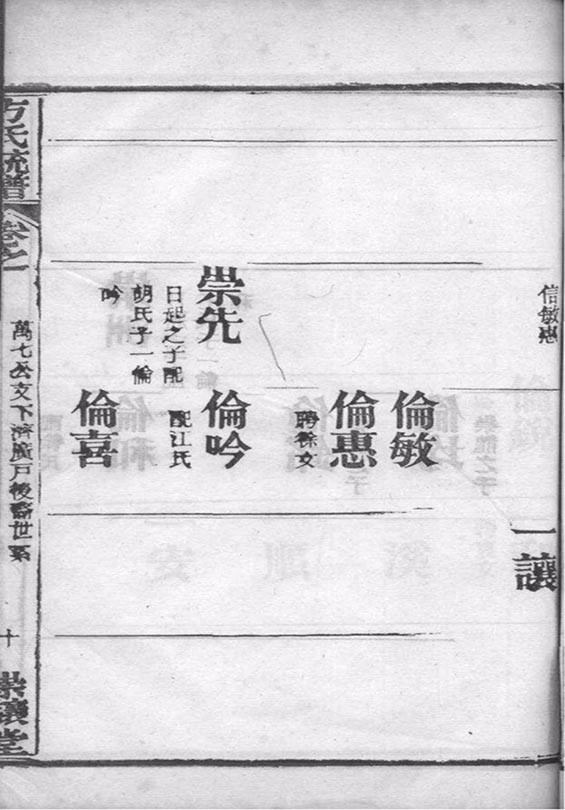 信敏惠
一讓
倫敏
倫惠
聘徐女
崇先
日起之子配
胡氏子一倫
吟
倫吟
配江氏
倫喜
方氏統譜
卷之一
萬七公文下濟廣戶後裔世系
十
崇讓堂